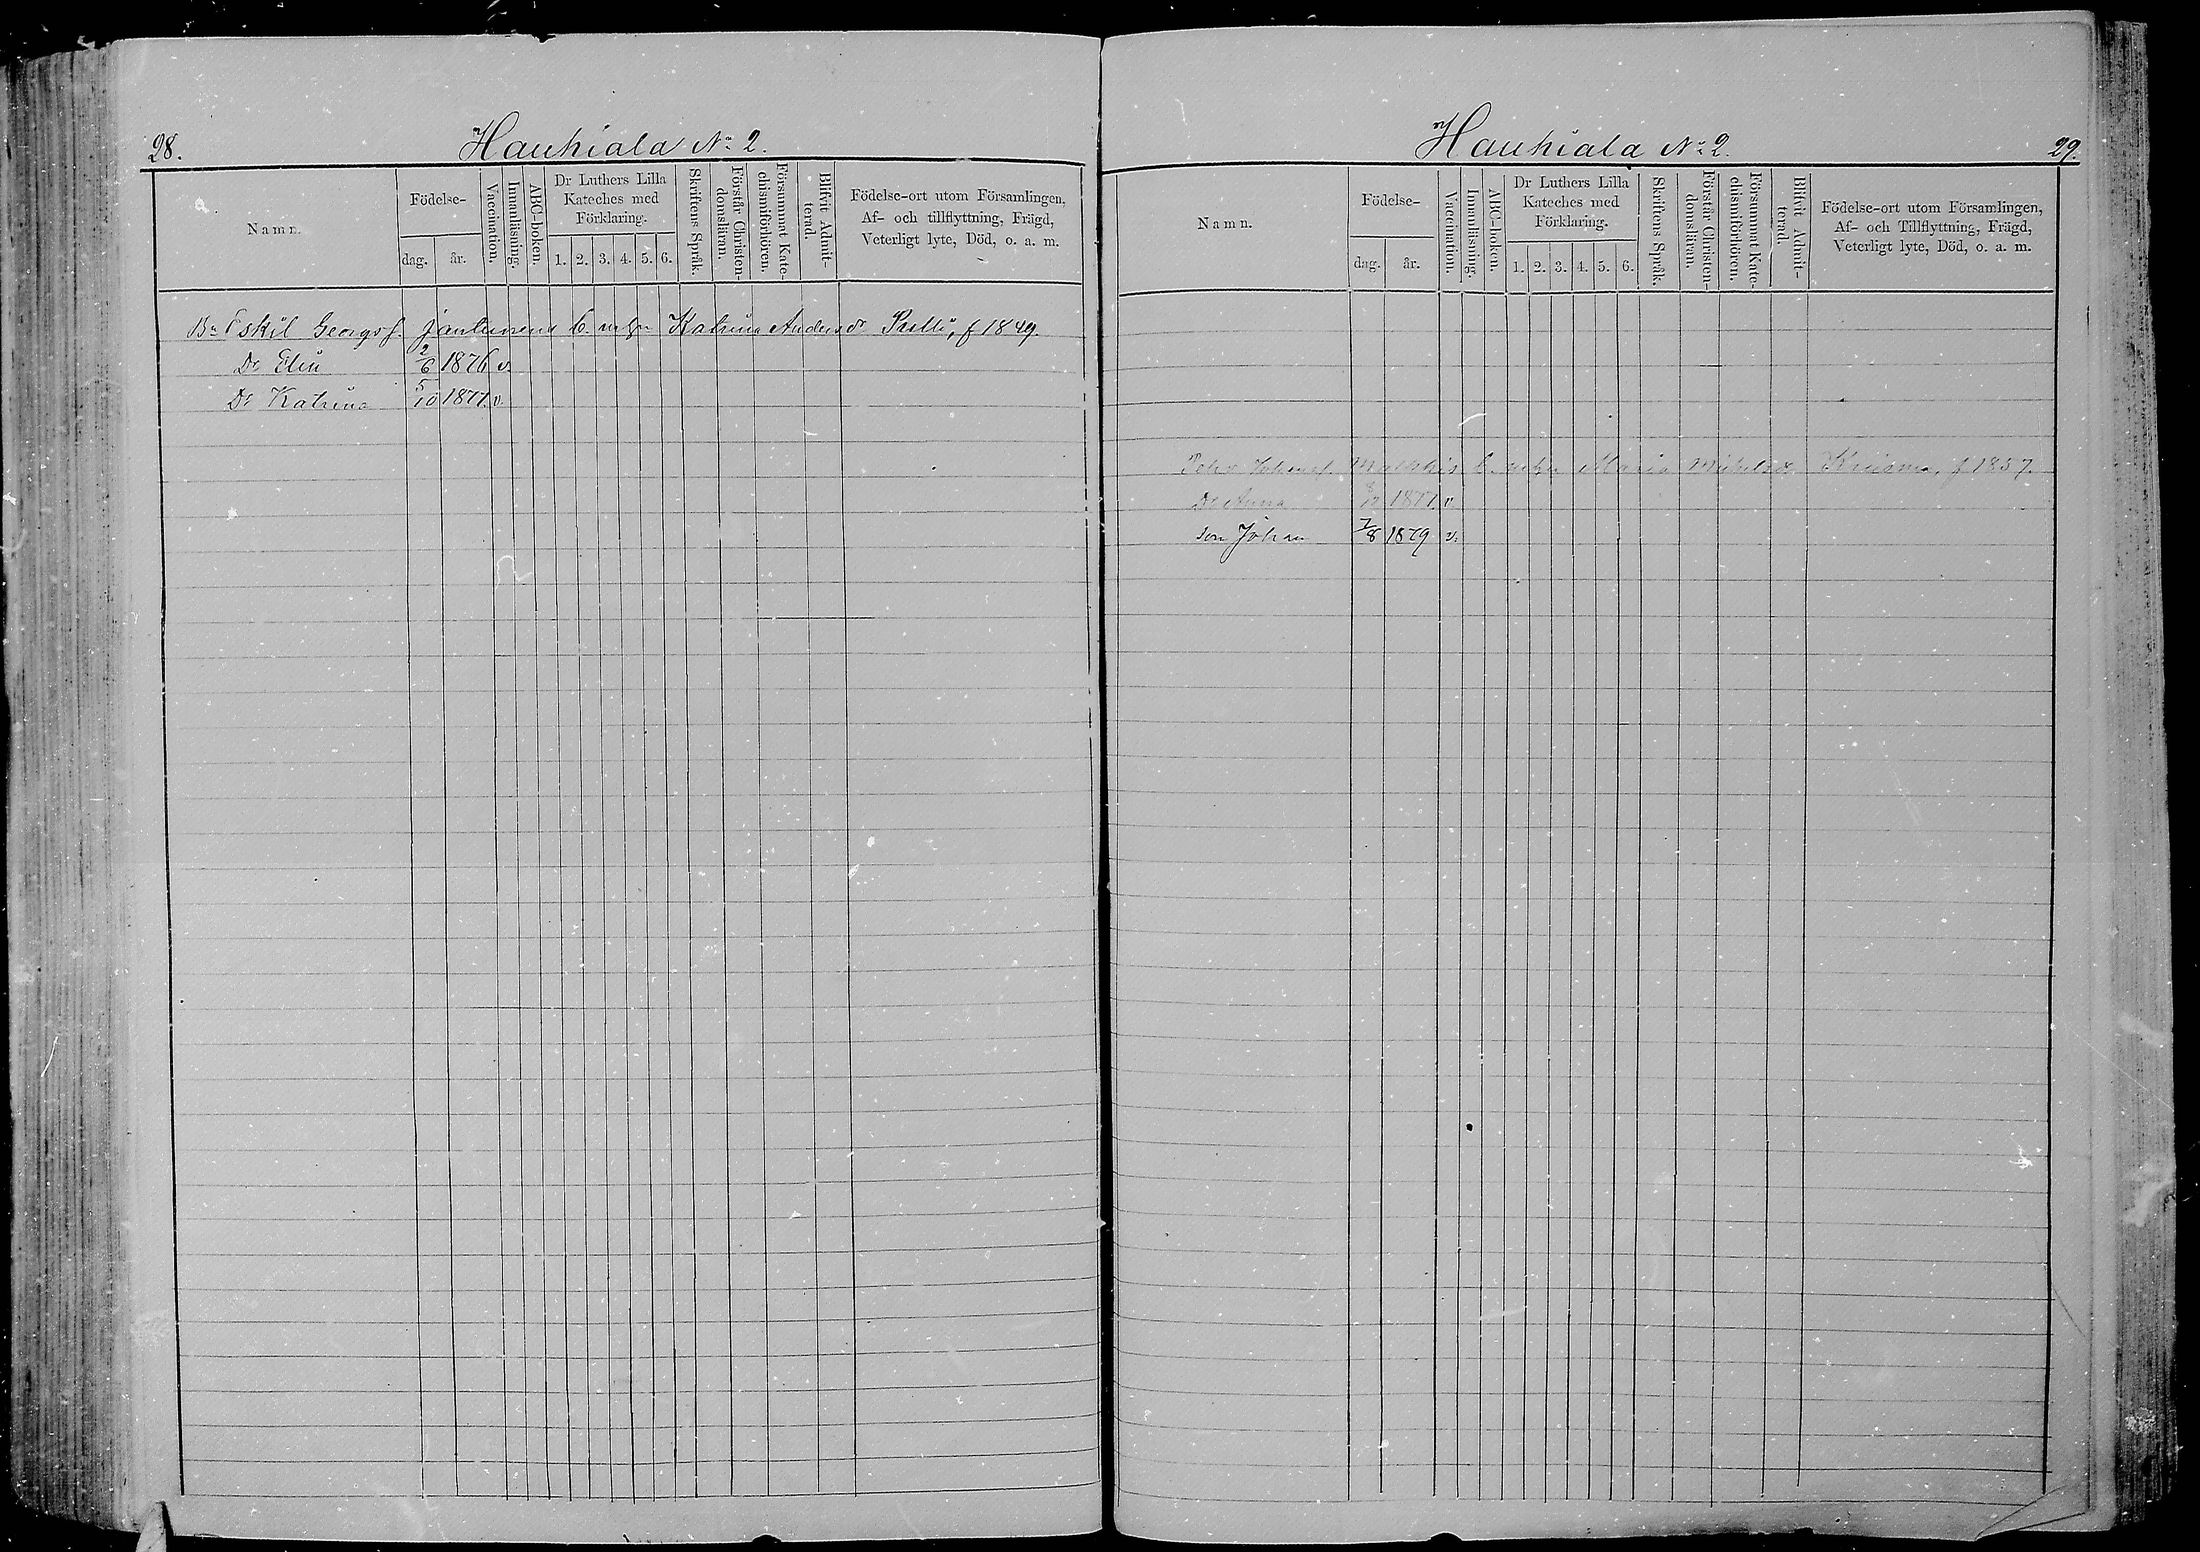 28.
Hauhiala No 2.
Namn.
Födelse-
dag.
år.
Vaccination.
Innanläsning.
ABC-boken.
Dr Luthers Lilla
Kateches med
Förklaring.
1. 2. 3. 4. 5. 6.
Skriftens Språk.
Förstår Christen-
domsläran.
Försummat Kate-
chismiförhören.
Blifvit Admit-
terad.
Födelse-ort utom Församlingen,
Af- och tillflyttning, Frägd,
Veterligt lyte, Död, o. a. m.
Bn Eskil Georgsf. Jantunens b. m hn Katrina Andersdr Pulli, f 1849.
Dr Elin 2/6 1876 v.
Dr Katrina 5/10 1877. v.
Hauhiala No 2.
29.
Namn.
Födelse-
dag.
år.
Vaccination.
Innanläsning.
ABC-boken.
Dr Luthers Lilla
Kateches med
Förklaring.
1. 2. 3. 4. 5. 6.
Skriftens Språk.
Förstår Christen-
domsläran.
Försummat Kate-
chismiförhören.
Blifvit Admit-
terad.
Födelse-ort utom Församlingen,
Af- och Tillflyttning, Frägd,
Veterligt lyte, Död, o. a. m.
Maria f 1857.
Dr Anna 1877. v
son Johan 7/8 1879 v.